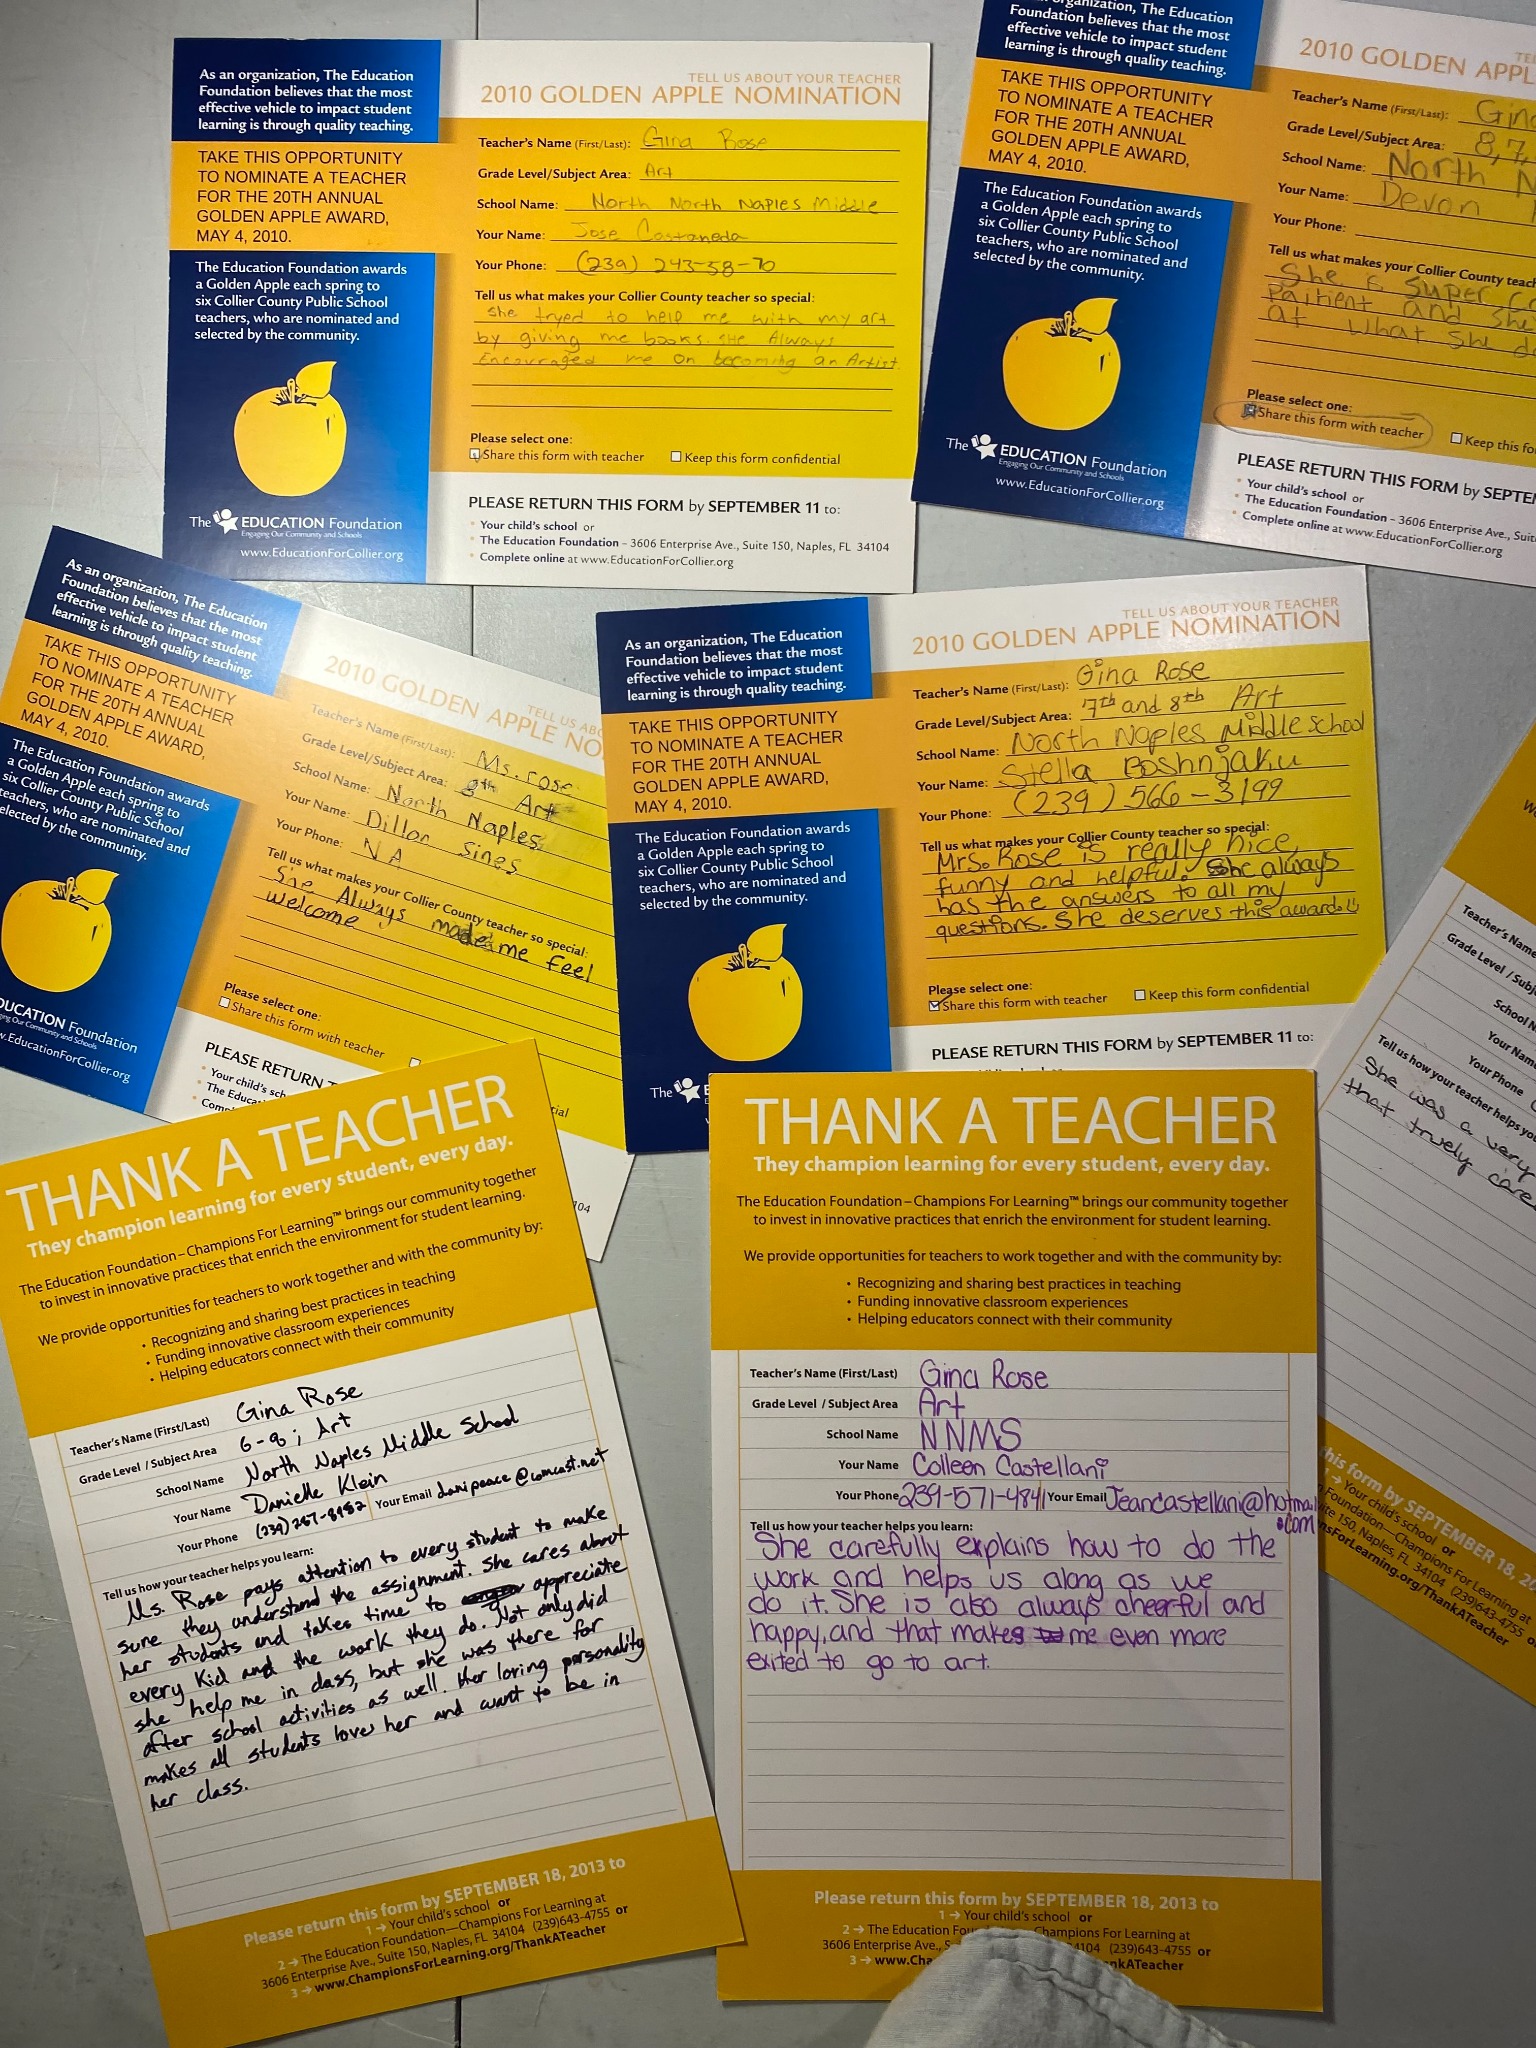 As an organization, The Education
Foundation believes that the most
effective vehicle to impact student
learning is through quality teaching.
TAKE THIS OPPORTUNITY
TO NOMINATE A TEACHER
FOR THE 20TH ANNUAL
GOLDEN APPLE AWARD,
MAY 4, 2010.
The Education Foundation awards
a Golden Apple each spring to
six Collier County Public School
teachers, who are nominated and
selected by the community.
The EDUCATION Foundation
Engaging Our Community and Schools
www.EducationForCollier.org
TELL US ABOUT YOUR TEACHER
2010 GOLDEN APPLE NOMINATION
Teacher's Name (First/Last): Gina Rose
Grade Level/Subject Area: Art
School Name: North North Naples Middle
Your Name: Jose Castaneda
Your Phone: (239) 243-58-70
Tell us what makes your Collier County teacher so special:
she tryed to help me with my art
by giving me books. she Always
Encouraged me on becoming an Artist.
Please select one:
Share this form with teacher Keep this form confidential
PLEASE RETURN THIS FORM by SEPTEMBER 11 to:
• Your child's school or
• The Education Foundation – 3606 Enterprise Ave., Suite 150, Naples, FL 34104
• Complete online at www.EducationForCollier.org
organization, The Education
Foundation believes that the most
effective vehicle to impact student
learning is through quality teaching.
TAKE THIS OPPORTUNITY
TO NOMINATE A TEACHER
FOR THE 20TH ANNUAL
GOLDEN APPLE AWARD,
MAY 4, 2010.
The Education Foundation awards
a Golden Apple each spring to
six Collier County Public School
teachers, who are nominated and
selected by the community.
The EDUCATION Foundation
Engaging Our Community and Schools
www.EducationForCollier.org
2010 GOLDEN APPL
Teacher's Name (First/Last): Gin
Grade Level/Subject Area: 8,7,
School Name: North N
Your Name: Devon
Your Phone:
Tell us what makes your Collier County teac
She is super co
Paitient and she
at what she do
Please select one:
Share this form with teacher Keep this fo
PLEASE RETURN THIS FORM by SEPTE
• Your child's school or
• The Education Foundation – 3606 Enterprise Ave., Suit
• Complete online at www.EducationForCollier.org
As an organization, The Education
Foundation believes that the most
effective vehicle to impact student
learning is through quality teaching.
TAKE THIS OPPORTUNITY
TO NOMINATE A TEACHER
FOR THE 20TH ANNUAL
GOLDEN APPLE AWARD,
MAY 4, 2010.
The Education Foundation awards
a Golden Apple each spring to
six Collier County Public School
teachers, who are nominated and
selected by the community.
DUCATION Foundation
ing Our Community and Schools
w.EducationForCollier.org
TELL US ABO
2010 GOLDEN APPLE NO
Teacher's Name (First/Last): Ms. rose
Grade Level/Subject Area: 8th Art
School Name: North Naples
Your Name: Dillon Sines
Your Phone: NA
Tell us what makes your Collier County teacher so special:
She Always made me feel
welcome
Please select one:
Share this form with teacher
ial
PLEASE RETURN T
• Your child's sch
• The Educa
• Com
104
As an organization, The Education
Foundation believes that the most
effective vehicle to impact student
learning is through quality teaching.
TAKE THIS OPPORTUNITY
TO NOMINATE A TEACHER
FOR THE 20TH ANNUAL
GOLDEN APPLE AWARD,
MAY 4, 2010.
The Education Foundation awards
a Golden Apple each spring to
six Collier County Public School
teachers, who are nominated and
selected by the community.
The
TELL US ABOUT YOUR TEACHER
2010 GOLDEN APPLE NOMINATION
Teacher's Name (First/Last): Gina Rose
Grade Level/Subject Area: 7th and 8th Art
School Name: North Naples Middle school
Your Name: Stella Boshnjaku
Your Phone: (239) 566-3199
Tell us what makes your Collier County teacher so special:
Mrs. Rose is really nice,
funny and helpful. She always
has the answers to all my
questions. She deserves this award.
Please select one:
Share this form with teacher Keep this form confidential
PLEASE RETURN THIS FORM by SEPTEMBER 11 to:
THANK A TEACHER
They champion learning for every student, every day.
The Education Foundation–Champions For Learning™ brings our community together
to invest in innovative practices that enrich the environment for student learning.
We provide opportunities for teachers to work together and with the community by:
• Recognizing and sharing best practices in teaching
• Funding innovative classroom experiences
• Helping educators connect with their community
Teacher's Name (First/Last) Gina Rose
Grade Level / Subject Area 6-8; Art
School Name North Naples Middle School
Your Name Danielle Klein
Your Phone (239)287-8982 Your Email danipeace@comcast.net
Tell us how your teacher helps you learn:
Ms. Rose pays attention to every student to make
sure they understand the assignment. She cares about
her students and takes time to appreciate
every kid and the work they do. Not only did
she help me in class, but she was there for
after school activities as well. Her loving personality
makes all students love her and want to be in
her class.
Please return this form by SEPTEMBER 18, 2013 to
1 → Your child's school or
2 → The Education Foundation—Champions For Learning at
3606 Enterprise Ave., Suite 150, Naples, FL 34104 (239)643-4755 or
3 → www.ChampionsForLearning.org/ThankATeacher
THANK A TEACHER
They champion learning for every student, every day.
The Education Foundation–Champions For Learning™ brings our community together
to invest in innovative practices that enrich the environment for student learning.
We provide opportunities for teachers to work together and with the community by:
• Recognizing and sharing best practices in teaching
• Funding innovative classroom experiences
• Helping educators connect with their community
Teacher's Name (First/Last) Gina Rose
Grade Level / Subject Area Art
School Name NNMS
Your Name Colleen Castellani
Your Phone 239-571-4841 Your Email Jeancastellani@hotmail
.com
Tell us how your teacher helps you learn:
She carefully explains how to do the
work and helps us along as we
do it. She is also always cheerful and
happy, and that makes me even more
exited to go to art.
Please return this form by SEPTEMBER 18, 2013 to
1 → Your child's school or
2 → The Education Foun Champions For Learning at
3606 Enterprise Ave., S 34104 (239)643-4755 or
3 → www.Cha nkATeacher
Teacher's Name
Grade Level / Subj
School N
Your Name
Your Phone
Tell us how your teacher helps you
She was a very
that truely care
this form by SEPTEMBER 18, 20
1 → Your child's school or
Foundation—Champions For Learning at
uite 150, Naples, FL 34104 (239)643-4755 o
nsForLearning.org/ThankATeacher